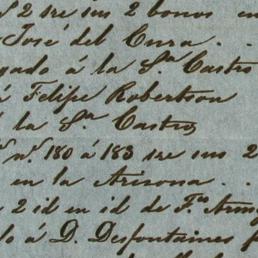 2 sre sus 2 bonos en
José del Cura . .
gado á la Sª Castro
á Felipe Robertson
la Sª Castro
nº 180 á 183 sre sus 2
en la Arizona . .
2 id en id de F.co
á D. Desfontaines